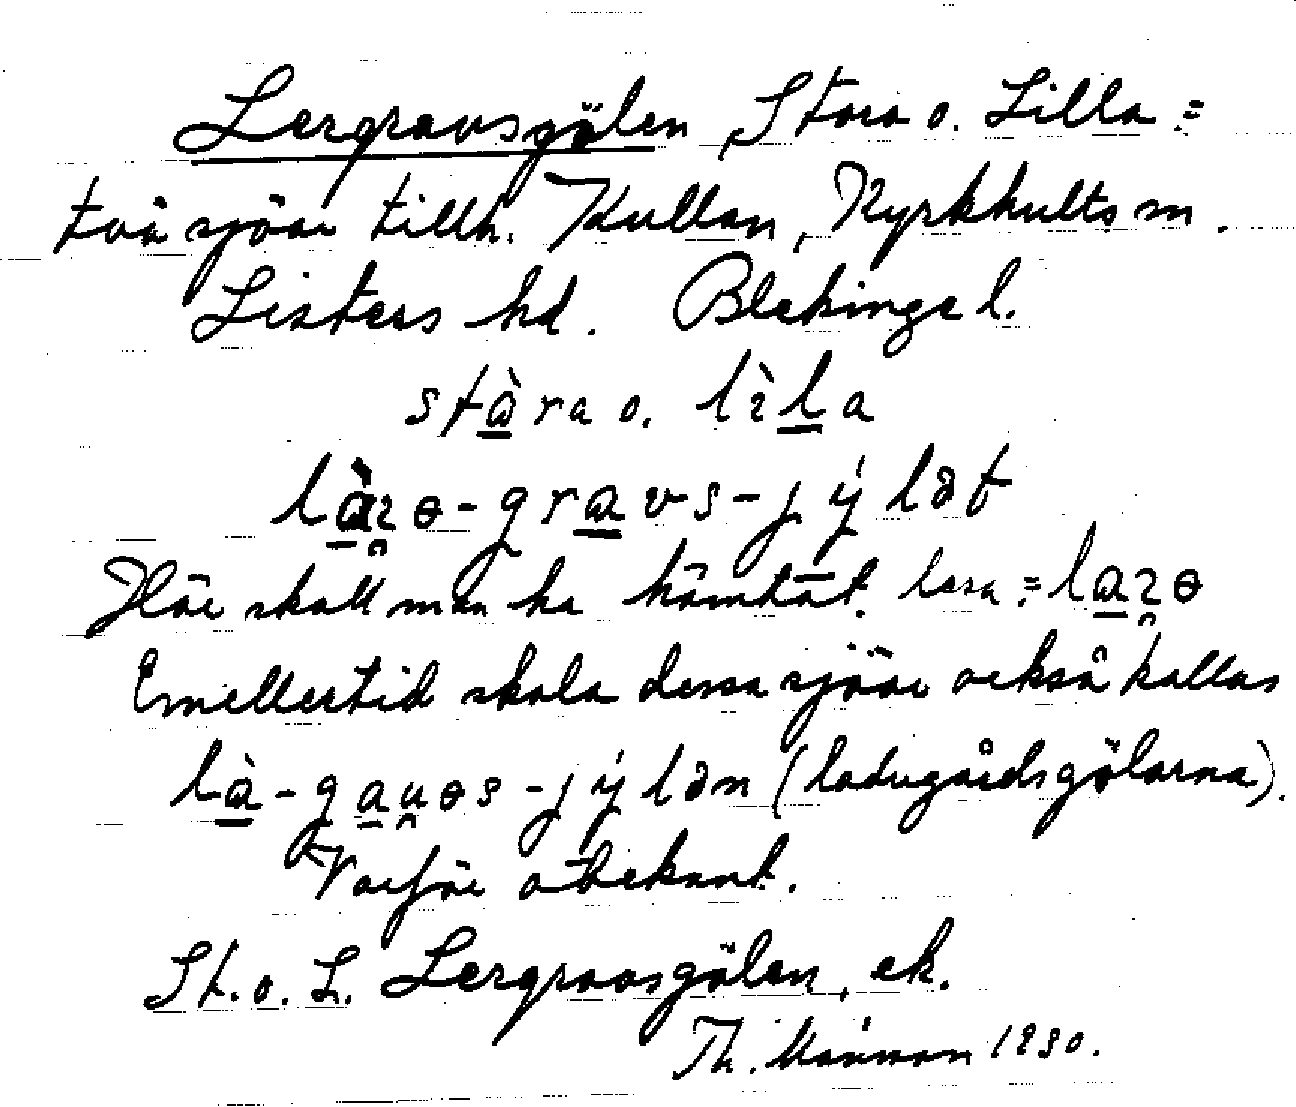 Lergravsgölen, Stora o. Lilla =
två sjöar tillh. Kullan, Kyrkhults sn.
Listers hd. Blekinge l.
stàra o. lìla
làɂɵ-gravs-jýlət
Här skall man ha hämtat lera = laɂɵ
Emellertid skola dessa sjöar också kallas
là-gauɵs-jýlən (ladugårdsgölarna).
Varför obekant.
St. o. L. Lergravsgölen, ek.
Th. 1930.